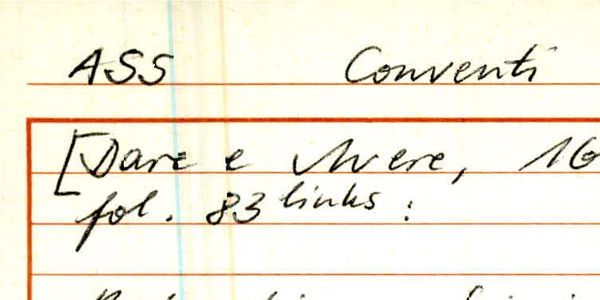 ASS Conventi
[Dare e Avere, 16
fol. 83 links :